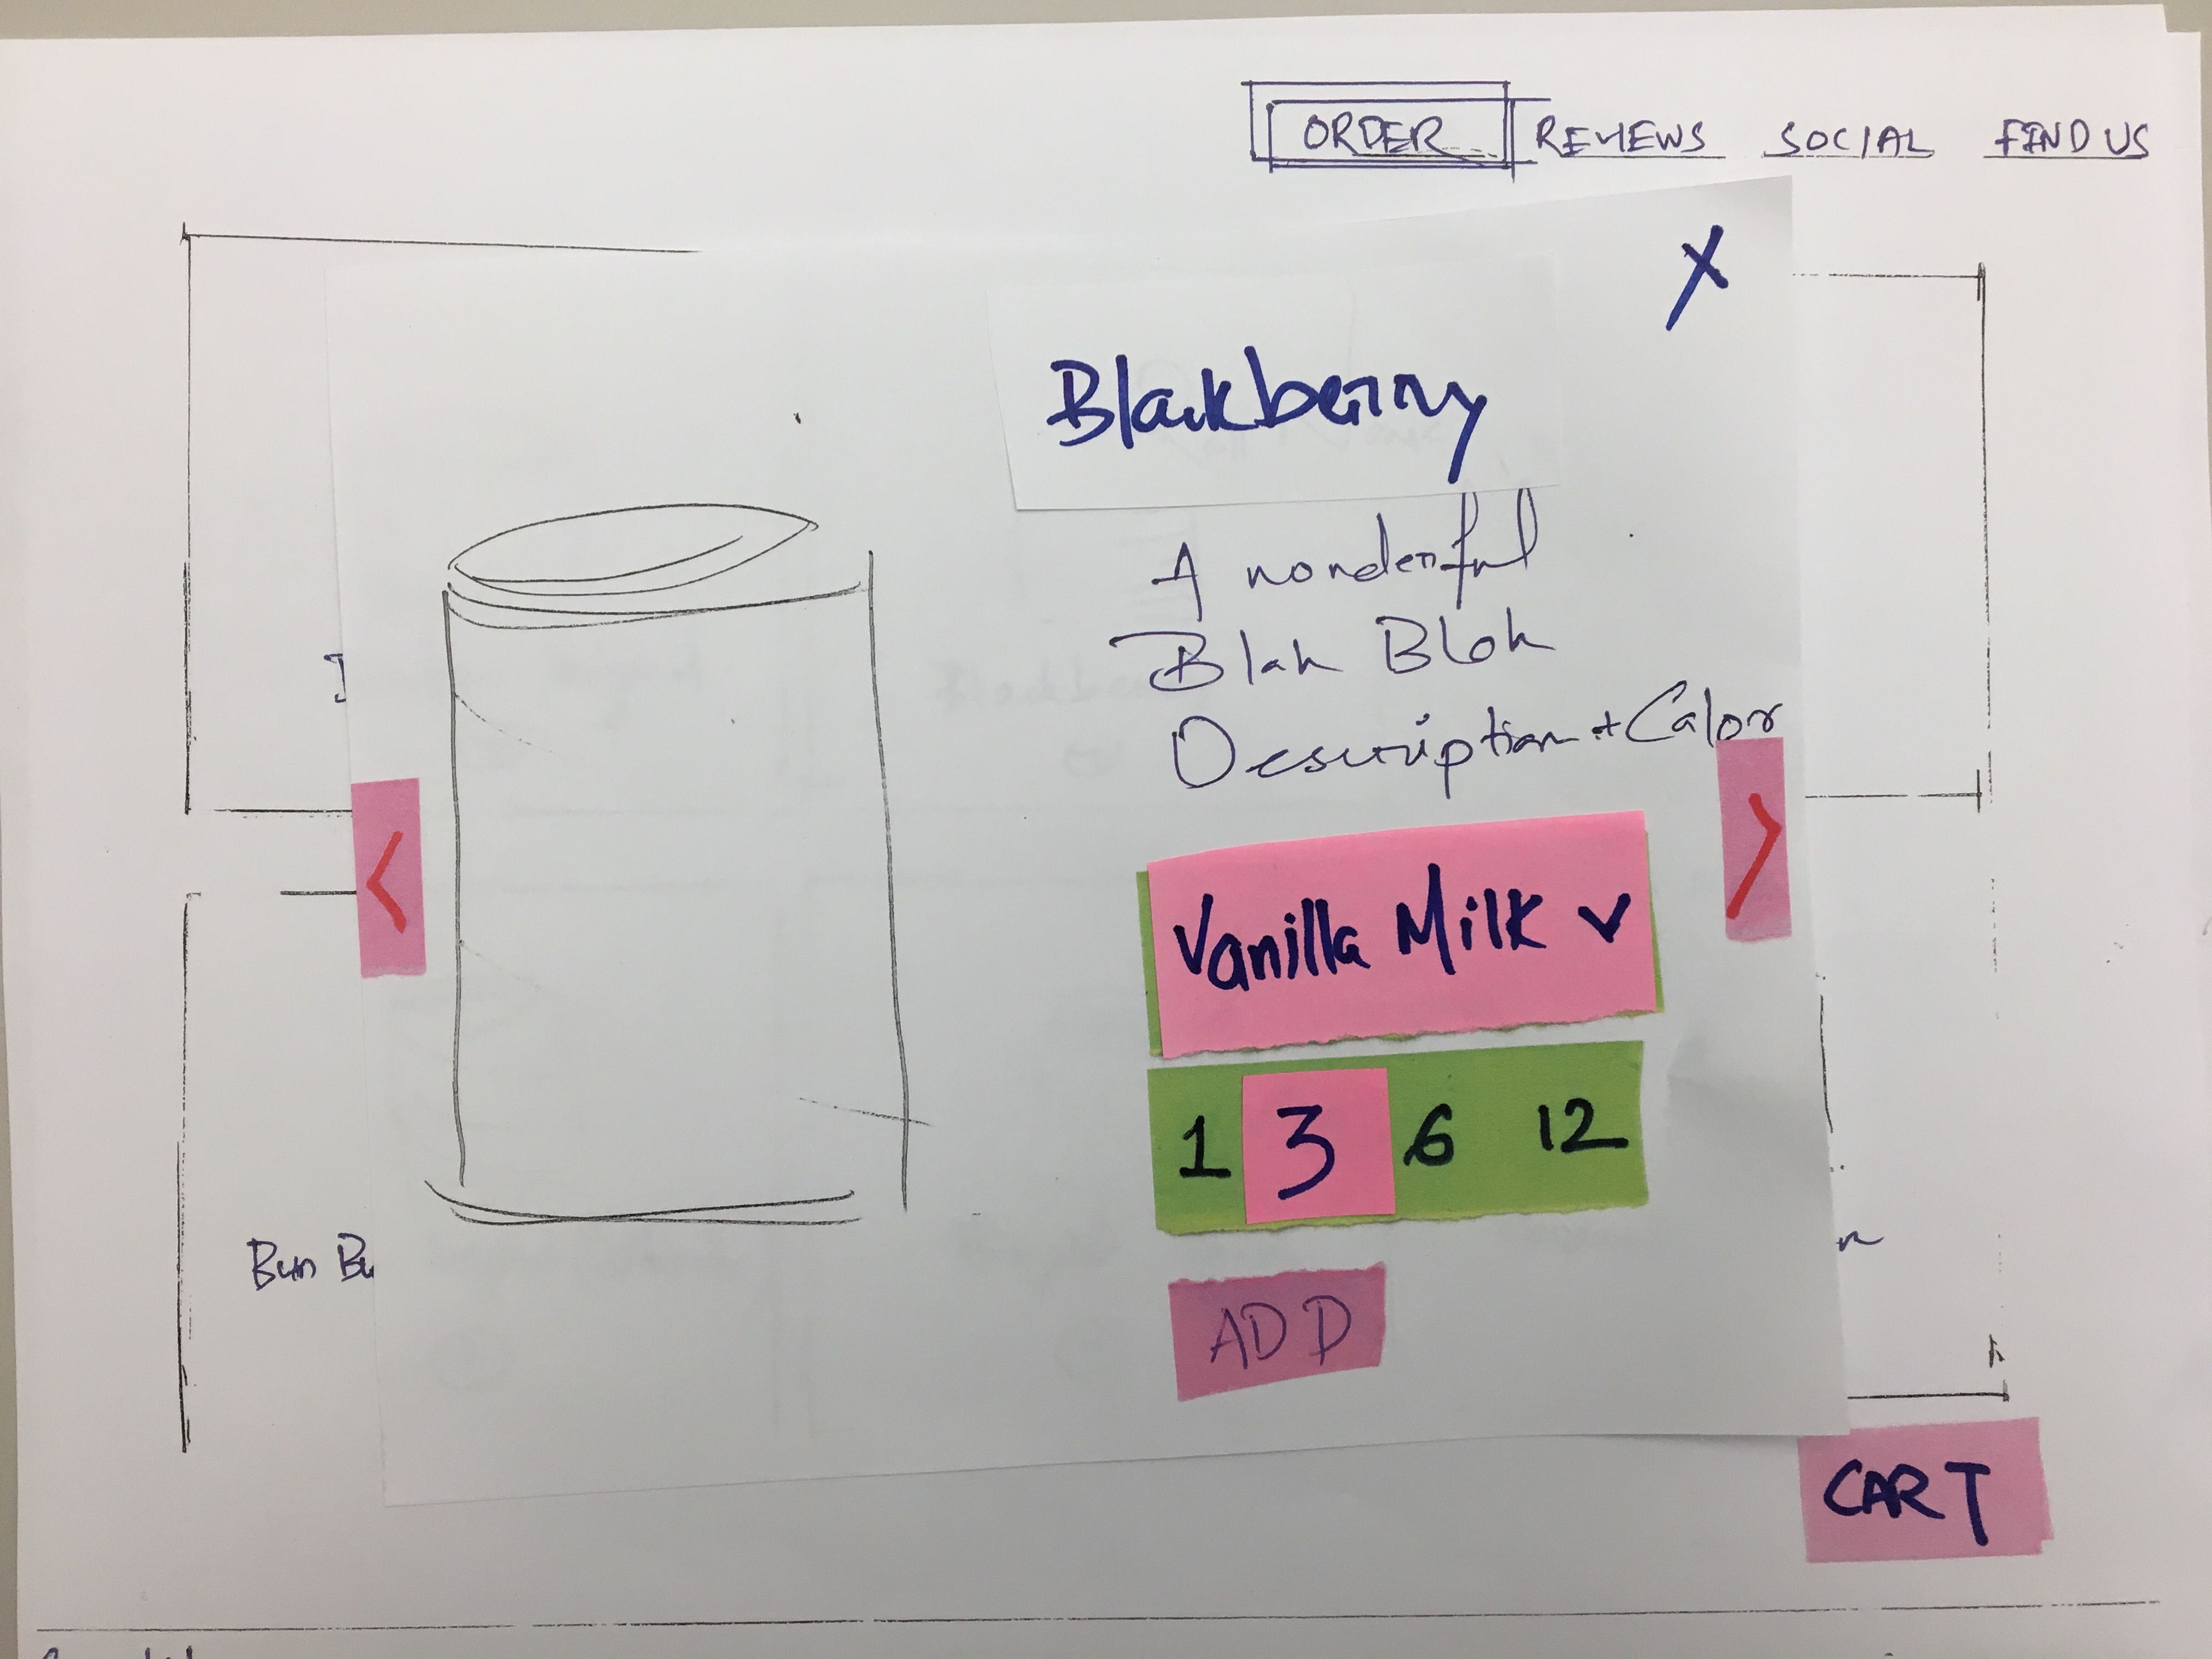 ORDER REVIEWS SOCIAL FIND US
X
Blackberry
A wonderful
Blah Blah
Description + Calor
< >
Vanilla Milk v
1 3 6 12
ADD
Bun Bu
CART